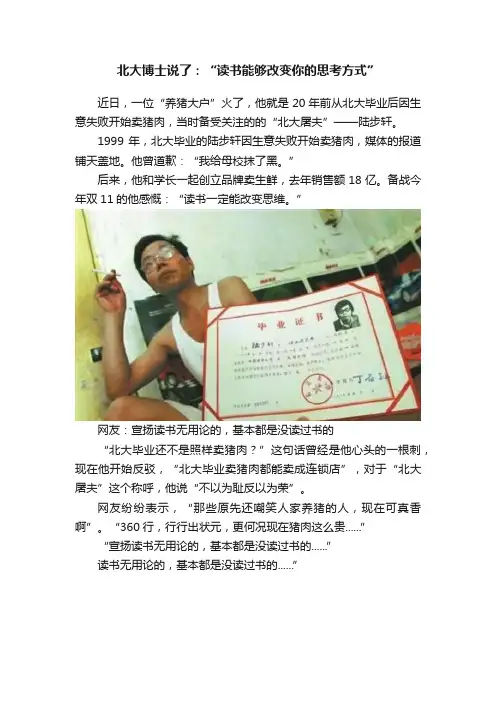 北大博士说了：“读书能够改变你的思考方式”
近日，一位“养猪大户”火了，他就是20年前从北大毕业后因生
意失败开始卖猪肉，当时备受关注的的“北大屠夫”——陆步轩。
1999年，北大毕业的陆步轩因生意失败开始卖猪肉，媒体的报道
铺天盖地。他曾道歉：“我给母校抹了黑。”
后来，他和学长一起创立品牌卖生鲜，去年销售额18亿。备战今
年双11的他感慨：“读书一定能改变思维。”
毕业证书
网友：宣扬读书无用论的，基本都是没读过书的
“北大毕业还不是照样卖猪肉？”这句话曾经是他心头的一根刺，
现在他开始反驳，“北大毕业卖猪肉都能卖成连锁店”，对于“北大
屠夫”这个称呼，他说“不以为耻反以为荣”。
网友纷纷表示，“那些原先还嘲笑人家养猪的人，现在可真香
啊”。“360行，行行出状元，更何况现在猪肉这么贵......”
“宣扬读书无用论的，基本都是没读过书的......”
读书无用论的，基本都是没读过书的......”